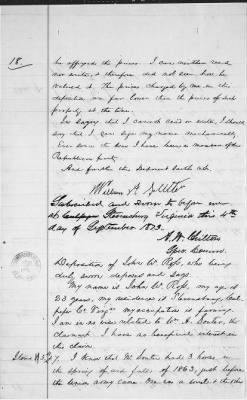 18.
he affixed the prices. I can neither read
nor write, & therefore did not see how he
valued it. The prices charged by me in this
deposition are far lower than the prices of such
property at the time.
In saying that I cannot read or write, I should
say that I can sign my name mechanically.
Ever since the war I have been a member of the
Republican party.
And further the Deponent saith not.
William
Subscribed and Sworn to before me
at Stevensburg Virginia this 4th
day of September 1873.
Deposition of John W. Ross, who being
duly sworn deposes and says.
My name is John W. Ross, my age is
23 years, my residence is Stevensburg, Cul-
peper Co. Virga my occupation is farming.
I am in no wise related to Wm. H.
the claimant. I have no beneficial interest in
the claim.
7. I know that Mr. had 3 horses in
the spring of and fall of 1863, just before
the Union army came